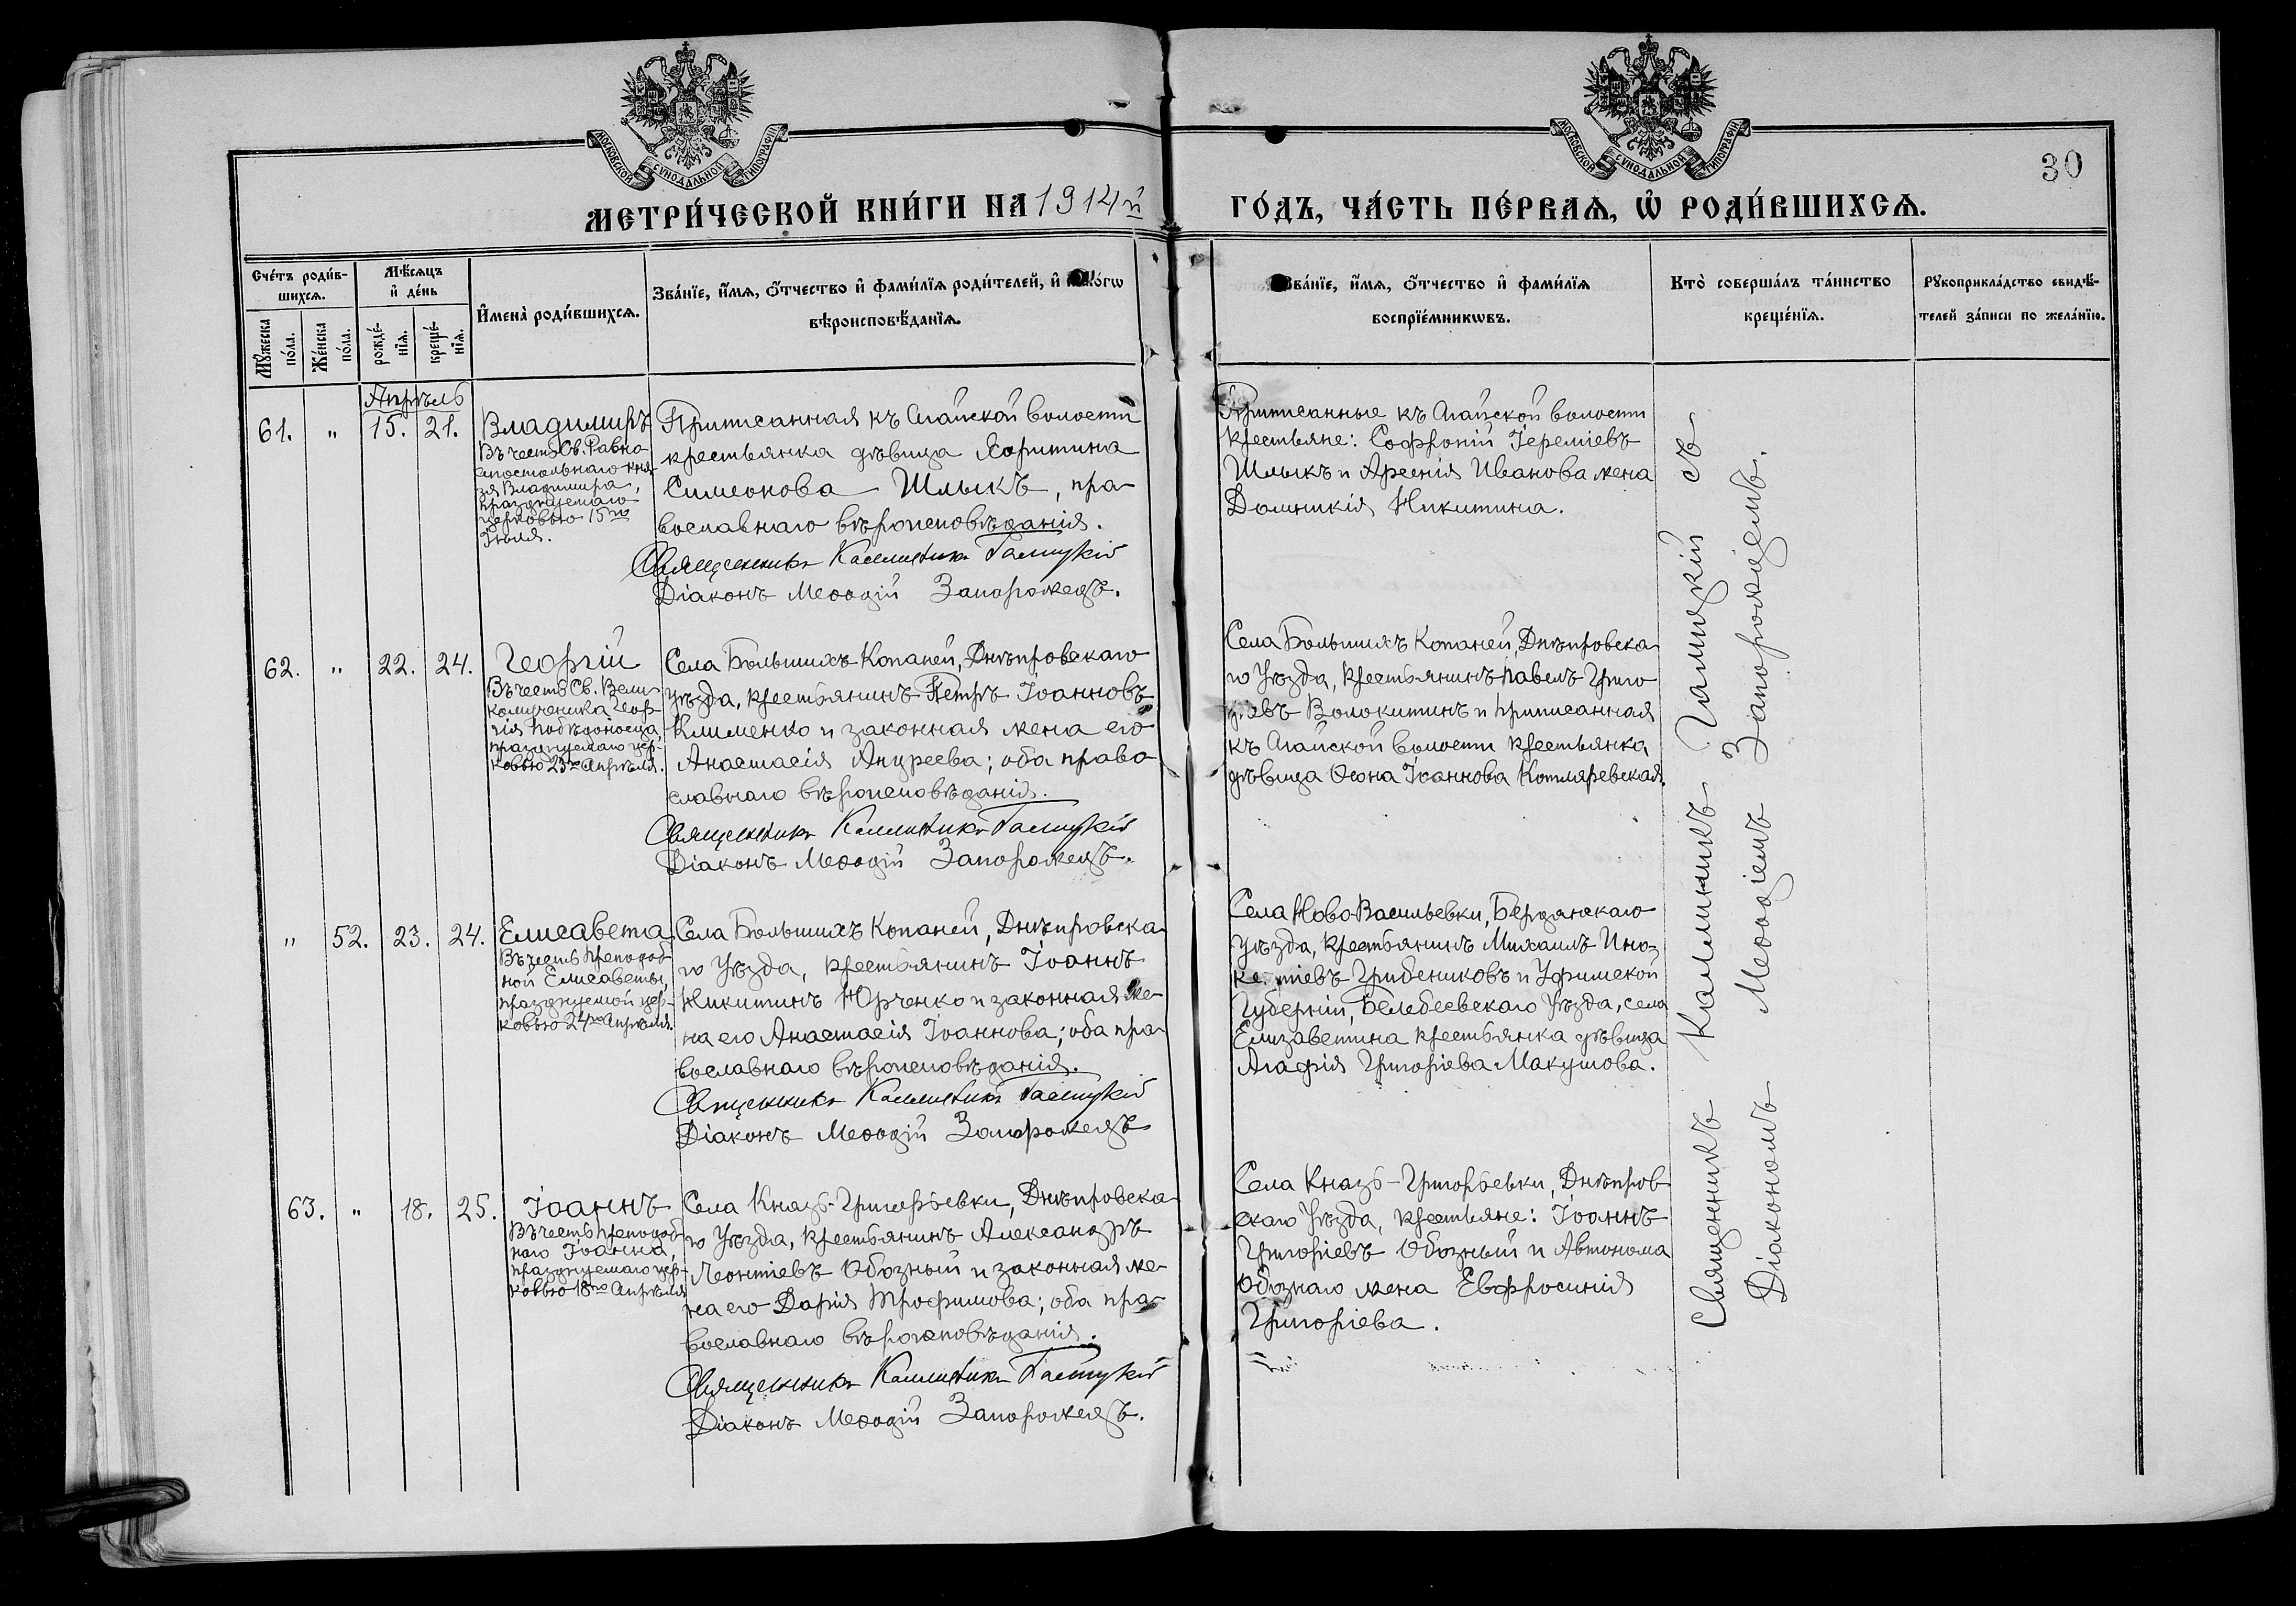 МОСКОВСКОЙ СѴНОДАЛЬНОЙ ТИПОГРАФІИ
МОСКОВСКОЙ СѴНОДАЛЬНОЙ ТИПОГРАФІИ
30
МЕТРИ́ЧЕСКОЙ КНИ́ГИ НА 1914й
ГО́ДЪ, ЧА́СТЬ ПЕ́РВАѦ, Ѡ҆ РОДИ́ВШИХСѦ.
Сче́тъ роди́в-
шихсѧ.
Мѣ́сѧцъ
и҆ де́нь
Мꙋ́жеска
по́ла.
Же́нска
по́ла.
рожде́-
нїѧ.
креще́-
нїѧ.
И҆мена̀ роди́вшихсѧ.
Зва́нїе, и҆́мѧ, ѻ҆́тчество и҆ фами́лїѧ роди́телей, и҆ како́гѡ
вѣроисповѣ́данїѧ.
Зва́нїе, и҆́мѧ, ѻ҆́тчество и҆ фами́лїѧ
воспрїе́мникѡвъ.
Кто̀ соверша́лъ та́инство
креще́нїѧ.
Рꙋкоприкла́дство свидѣ́-
телей за́писи по жела́нїю.
Апрѣль
61.
"
15.
21.
Владимиръ
Въ честь Св. Равно-
апостольнаго кня-
зя Владимира,
празднуемаго
церковью 15го
Іюля.
Приписанная къ Агайской волости
крестьянка дѣвица Харитина
Симеонова Шлыкъ, пра-
вославнаго вѣроисповѣданія.
Священникъ Каллиникъ Галицкій
Діаконъ Меѳодій Запорожецъ.
Приписанные къ Агайской волости
крестьяне: Софроній Іереміевъ
Шлыкъ и Арсенія Иванова жена
Домникія Никитина.
62.
"
22.
24.
Георгій
Въ честь Св. Вели-
комученика Геор-
гія Побѣдоносца,
празднуемаго цер-
ковью 23го Апрѣля.
Села Большихъ Копаней, Днѣпровскаго
уѣзда, крестьянинъ Петръ Іоанновъ
Клименко и законная жена его
Анастасія Андреева; оба право-
славнаго вѣроисповѣданія.
Священникъ Каллиникъ Галицкій
Діаконъ Меѳодій Запорожецъ.
Села Большихъ Копаней, Днѣпровска-
го Уѣзда, крестьянинъ Павелъ Григо-
рьевъ Волокитинъ и приписанная
къ Агайской волости крестьянка
дѣвица Ѳеона Іоаннова Котляревская.
"
52.
23.
24.
Елисавета
Въ честь Преподоб-
ной Елисаветы,
празднуемой цер-
ковью 24го Апрѣля.
Села Большихъ Копаней, Днѣпровска-
го Уѣзда, крестьянинъ Іоаннъ
Никитинъ Юрченко и законная же-
на его Анастасія Іоаннова; оба пра-
вославнаго вѣроисповѣданія.
Священникъ Каллиникъ Галицкій
Діаконъ Меѳодій Запорожецъ
Села НовоВасильевки, Бердянскаго
Уѣзда, крестьянинъ Михаилъ Ино-
кентіевъ Грибениковъ и Уфимской
Губерніи, Белебеевскаго Уѣзда, села
Елизаветина крестьянка дѣвица
Агафія Григоріева Макушова.
63.
"
18.
25.
Іоаннъ
Въ честь Преподоб-
наго Іоанна,
празднуемаго цер-
ковью 18го Апрѣля
Села Князь-Григорьевки, Днѣпровска-
го Уѣзда, крестьянинъ Александръ
Леонтіевъ Обозный и законная же-
на его Дарія Трофимова; оба пра-
вославнаго вѣроисповѣданія.
Священникъ Каллиникъ Галицкій
Діаконъ Меѳодій Запорожецъ.
Села Князь-Григорьевки, Днѣпров-
скаго Уѣзда, крестьяне: Іоаннъ
Григоріевъ Обозный и Автонома
Обознаго жена Евфросинія
Григоріева.
Священникъ Каллиникъ Галицкій съ
Діакономъ Меѳодіемъ Запорожцемъ.